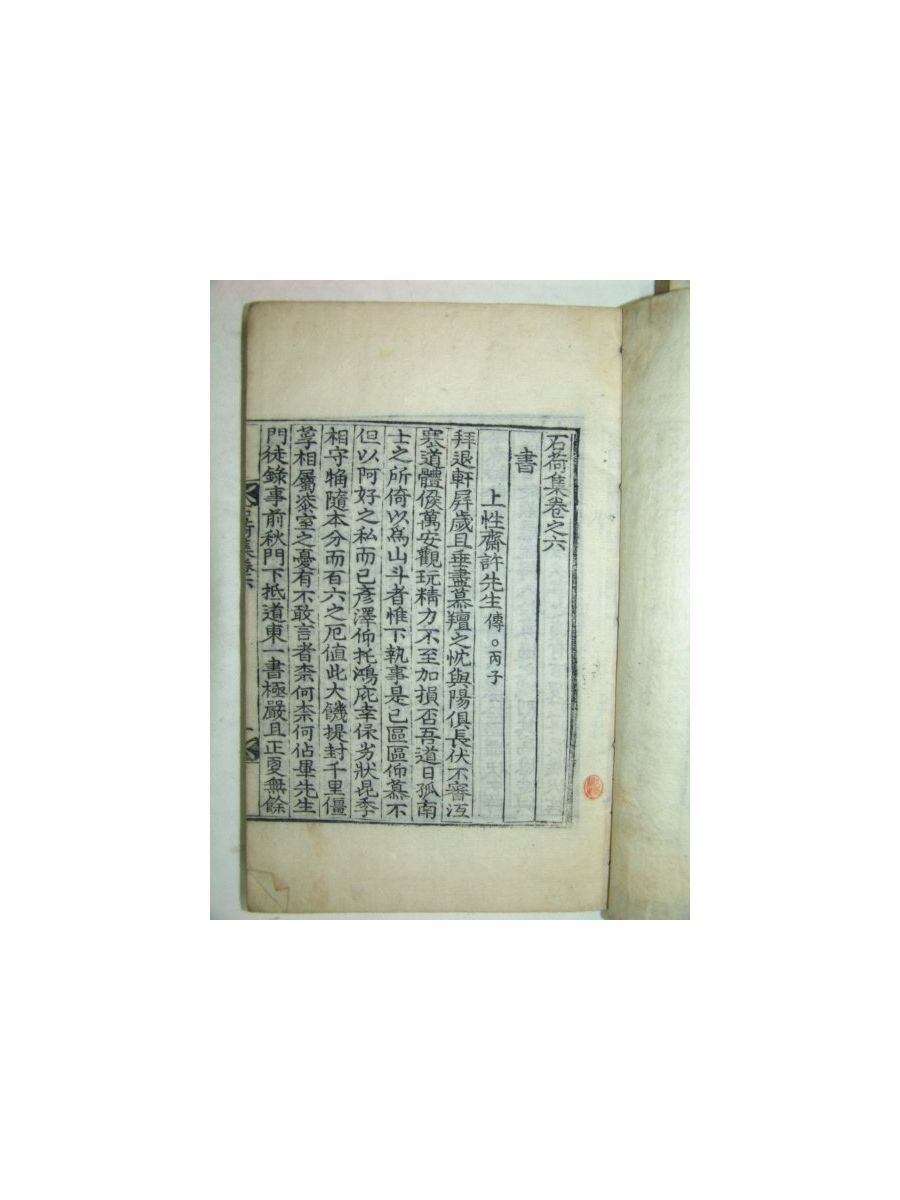 石荷集卷之六
書
上性齋許先生 傳。丙子
拜退軒屛歲且垂盡慕羶之忱與陽俱長伏不審沍
寒道體候萬安觀玩精力不至加損否吾道日孤南
士之所倚以爲山斗者惟下執事是已區區仰慕不
但以阿好之私而已彥澤仰托鴻庇幸保劣狀昆季
相守犐隨本分而百六之厄値此大饑提封千里僵
莩相屬漆室之憂有不敢言者柰何柰何佔畢先生
門徒錄事前秋門下抵道東一書極嚴且正更無餘